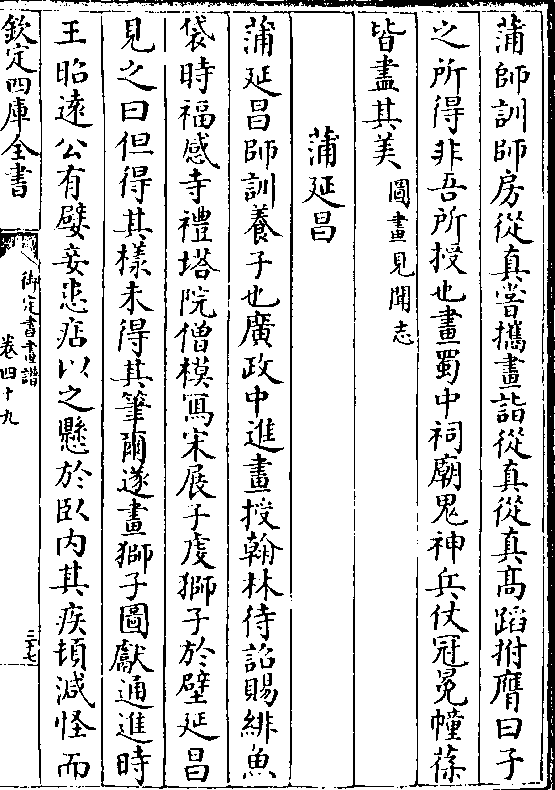 蒲師訓師房從真嘗攜畫詣從真從真髙蹈拊膺曰子
之所得非吾所授也畫蜀中祠廟鬼神兵仗冠冕幢葆
皆盡其美圖畫見聞志
蒲延昌
蒲延昌師訓養子也廣政中進畫授翰林待詔賜緋魚
袋時福感寺禮塔院僧模冩宋展子䖍獅子於壁延昌
見之曰但得其樣未得其筆爾遂畫獅子圖獻通進時
王昭逺公有嬖妾患痁以之懸於臥内其疾頓減怪而
欽定四庫全書
御定書畫譜
卷四十九
三七